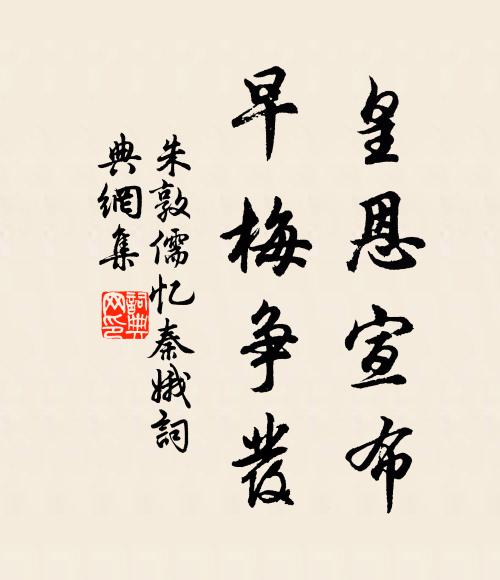 皇恩宣布
早梅争發
朱敦儒忆秦娥詞
典網集
詞典网印